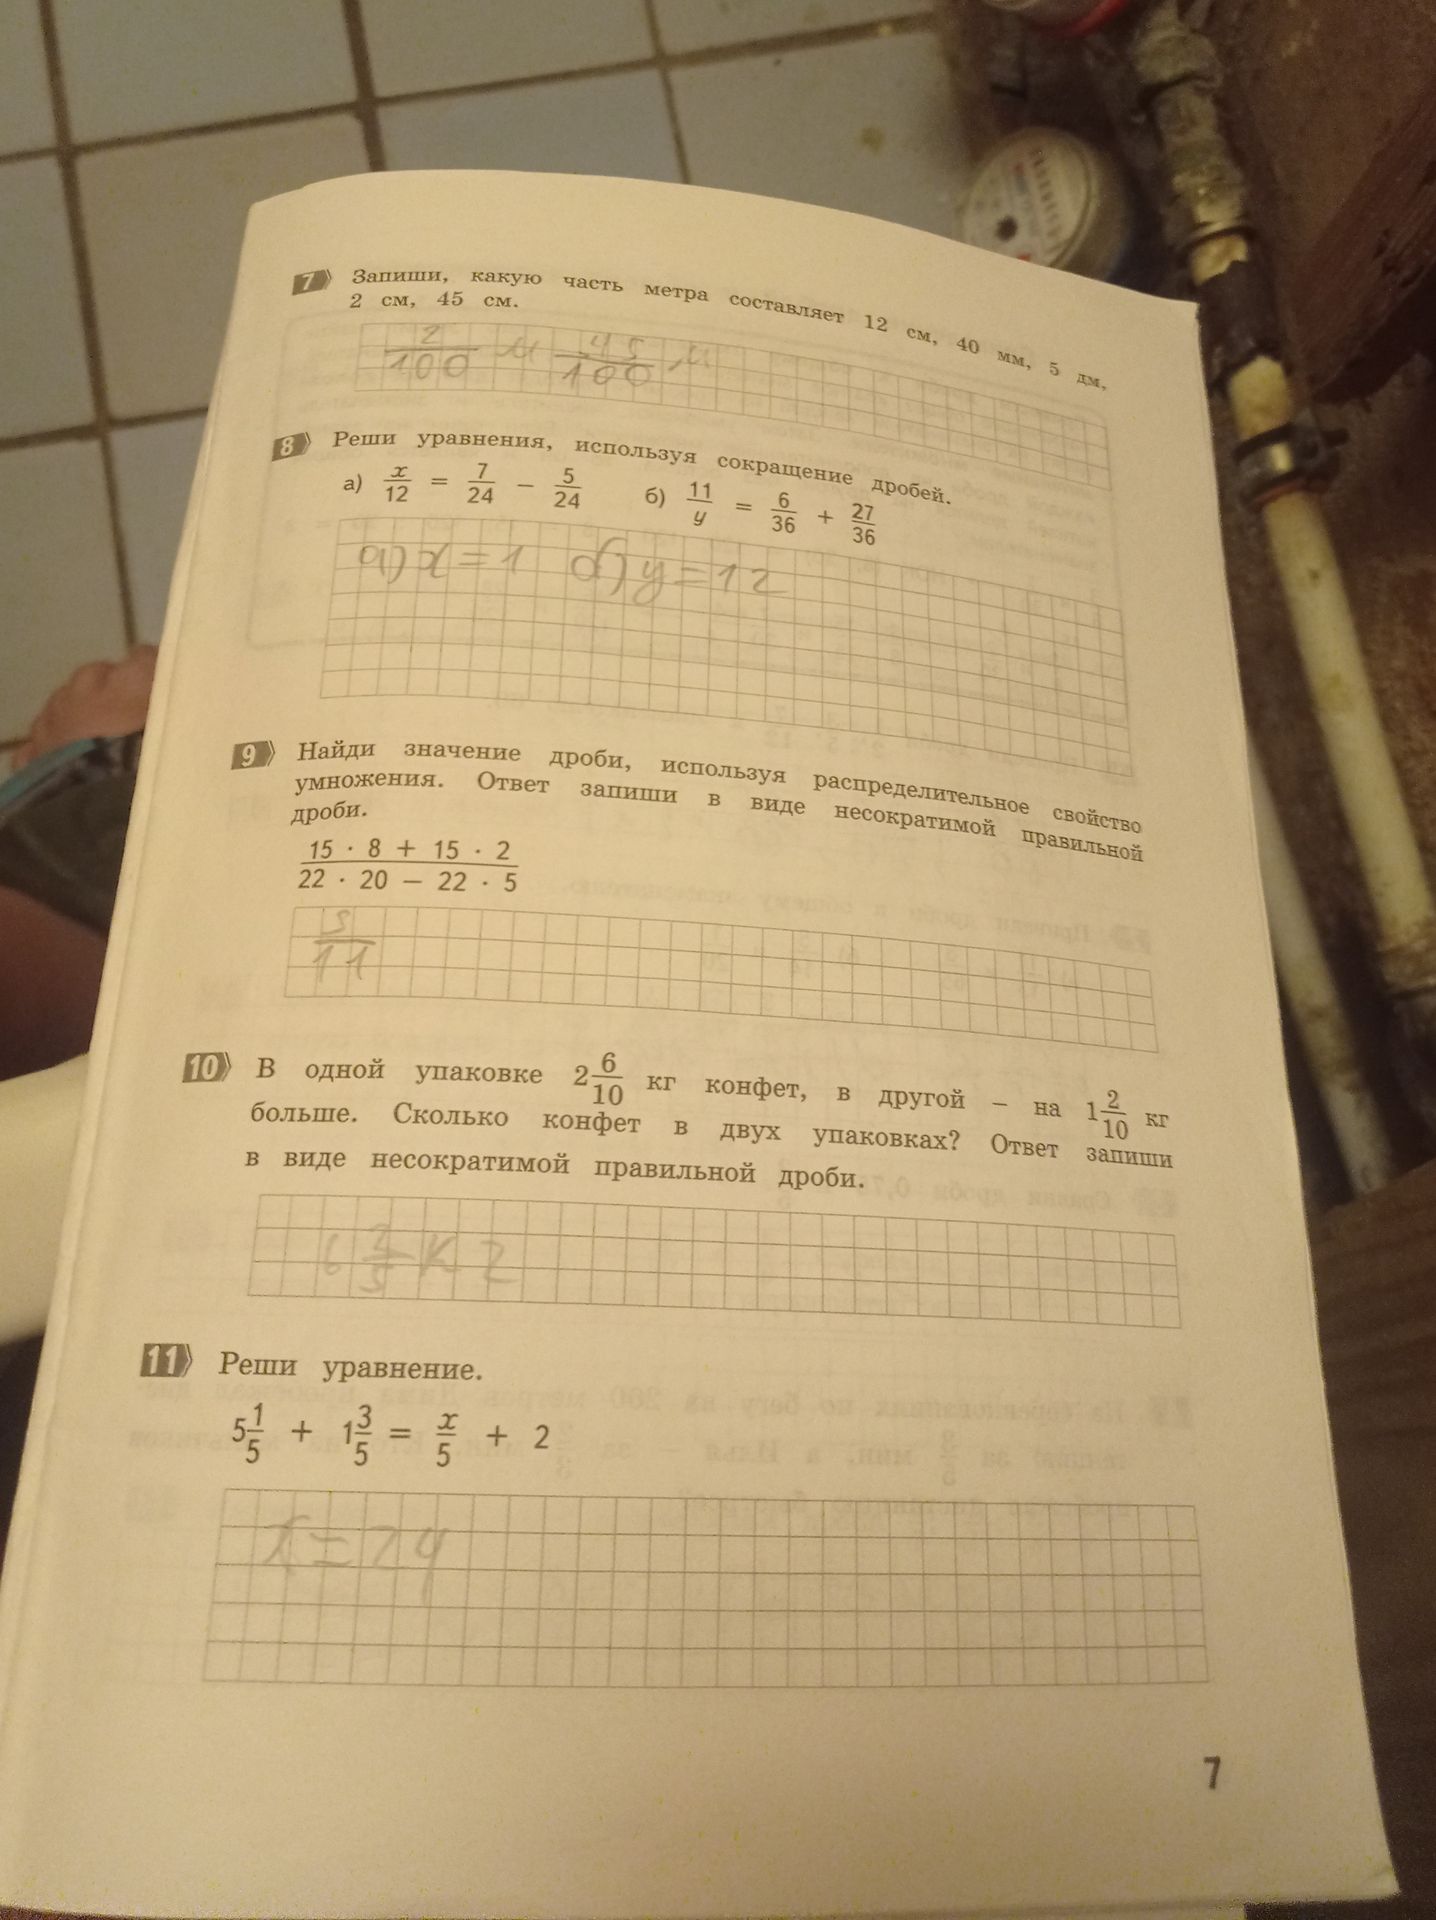 7 Запиши, какую часть метра составляет 12 см, 40 мм, 5 дм,
2 см, 45 см.
2/100 м 45/100 м
8 Реши уравнения, используя сокращение дробей.
а) x/12 = 7/24 − 5/24 б) 11/y = 6/36 + 27/36
а) x = 1 б) y = 12
9 Найди значение дроби, используя распределительное свойство
умножения. Ответ запиши в виде несократимой правильной
дроби.
15 · 8 + 15 · 2
22 · 20 − 22 · 5
5/11
10 В одной упаковке 2 6/10 кг конфет, в другой – на 1 2/10 кг
больше. Сколько конфет в двух упаковках? Ответ запиши
в виде несократимой правильной дроби.
6 2/5 кг
11 Реши уравнение.
5 1/5 + 1 3/5 = x/5 + 2
x = 24
7